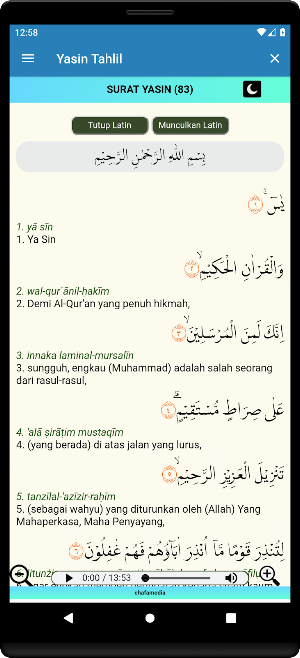 12:58
Yasin Tahlil
SURAT YASIN (83)
Tutup Latin
Munculkan Latin
بِسْمِ اللّٰهِ الرَّحْمٰنِ الرَّحِيْمِ
يٰسۤ ۚ ١
1. yā sīn
1. Ya Sin
وَالْقُرْاٰنِ الْحَكِيْمِۙ ٢
2. wal-qur`ānil-ḥakīm
2. Demi Al-Qur'an yang penuh hikmah,
اِنَّكَ لَمِنَ الْمُرْسَلِيْنَۙ ٣
3. innaka laminal-mursalīn
3. sungguh, engkau (Muhammad) adalah salah seorang
dari rasul-rasul,
عَلٰى صِرَاطٍ مُّسْتَقِيْمٍۗ ٤
4. 'alā ṣirāṭim mustaqīm
4. (yang berada) di atas jalan yang lurus,
تَنْزِيْلَ الْعَزِيْزِ الرَّحِيْمِۙ ٥
5. tanzīlal-'azīzir-raḥīm
5. (sebagai wahyu) yang diturunkan oleh (Allah) Yang
Mahaperkasa, Maha Penyayang,
لِتُنْذِرَ قَوْمًا مَّآ اُنْذِرَ اٰبَاۤؤُهُمْ فَهُمْ غٰفِلُوْنَ ٦
0:00 / 13:53
chafamedia